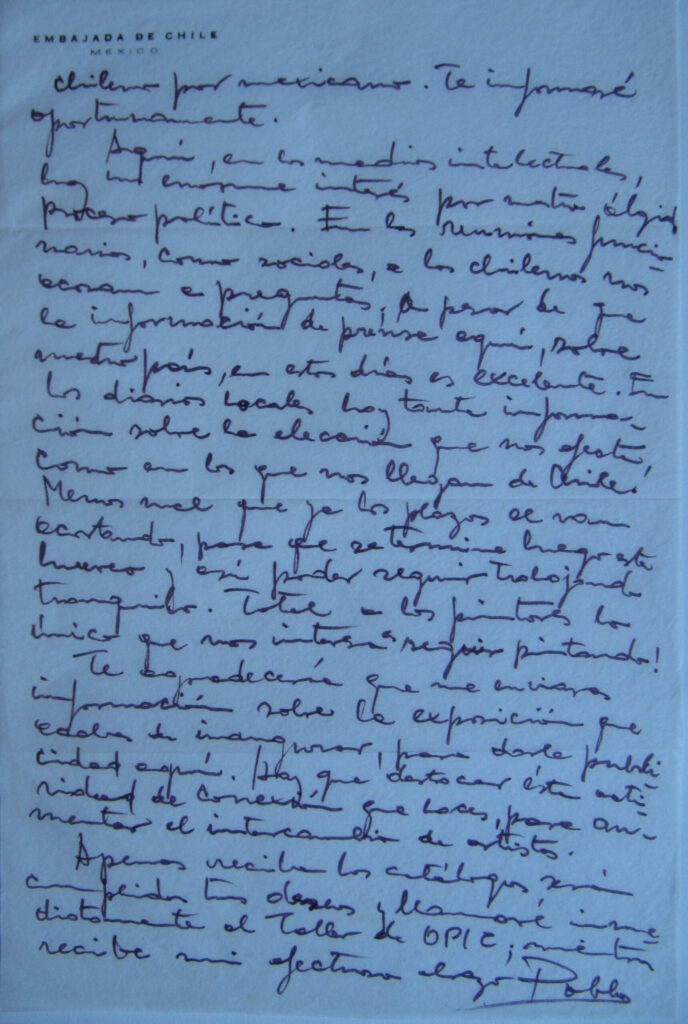 EMBAJADA DE CHILE
MEXICO
chileno por mexicano. Te informaré
oportunamente.
Aquí, en los medios intelectuales,
hay un enorme interés por nuestro álgido
proceso político. En las reuniones funcio-
narias, como sociales, a los chilenos nos
acosan a preguntas, a pesar de que
la información de prensa aquí, sobre
nuestro país, en estos días es excelente. En
los diarios locales hay tanta informa-
ción sobre la elección que nos afecta,
como en los que nos llegan de Chile.
Menos mal que ya los plazos se van
acortando, para que se termine luego este
hueveo y así poder seguir trabajando
tranquilo. Total a los pintores lo
único que nos interesa es seguir pintando!
Te agradecería que me enviaras
información sobre la exposición que
acabas de inaugurar, para darle publi-
cidad aquí. Hay que destacar ésta acti-
vidad de conexión que haces, para au-
mentar el intercambio de artistas.
Apenas reciba los catálogos serán
cumplidos tus deseos y llamaré inme-
diatamente al Taller de OPIC; mientras
recibe mi afectuoso abrazo Pablo